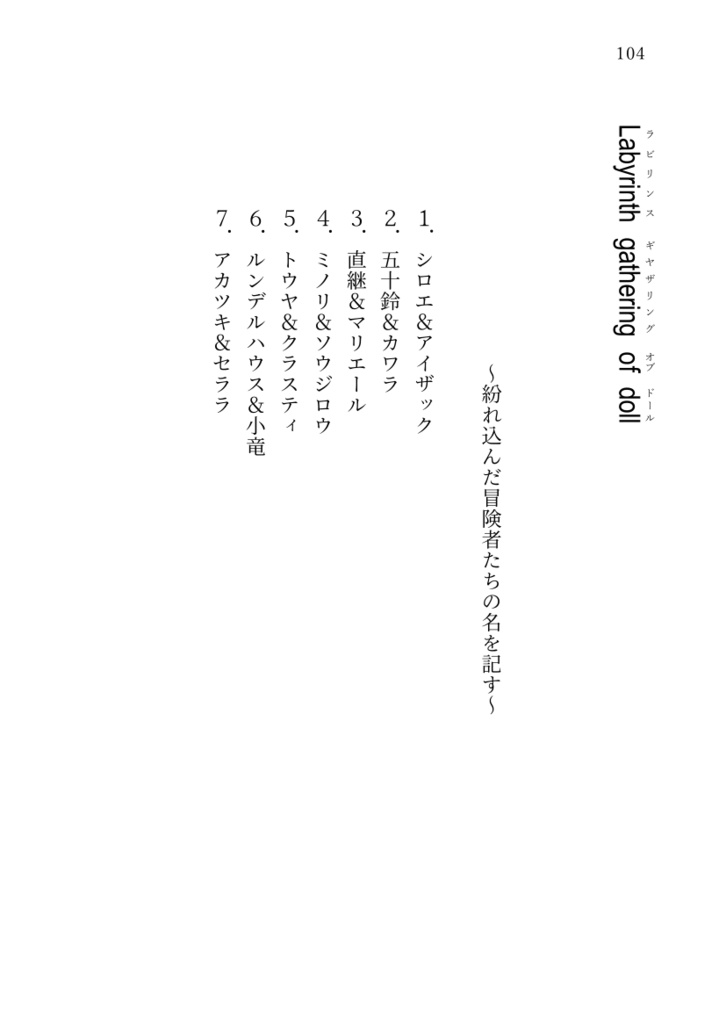 104
Labyrinth gathering of doll
ラビリンス ギャザリング オブ ドール
～紛れ込んだ冒険者たちの名を記す～
1. シロエ＆アイザック
2. 五十鈴＆カワラ
3. 直継＆マリエール
4. ミノリ＆ソウジロウ
5. トウヤ＆クラスティ
6. ルンデルハウス＆小竜
7. アカツキ＆セララ